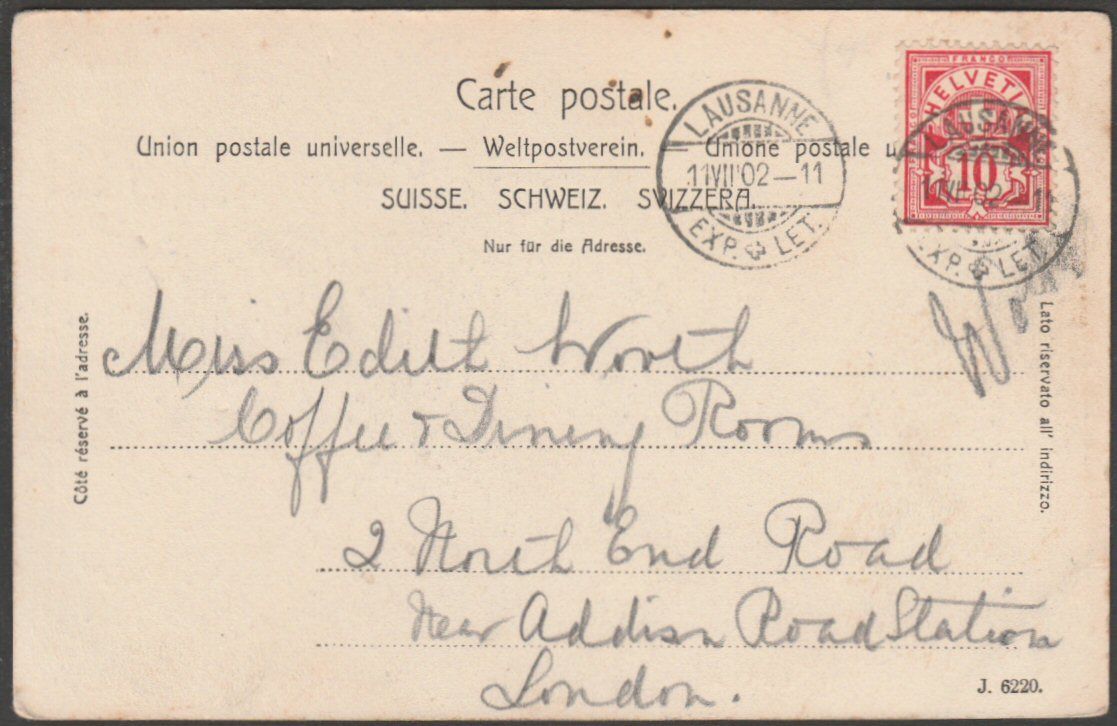 Carte postale.
Union postale universelle. — Weltpostverein. — Unione postale u
SUISSE. SCHWEIZ. SVIZZERA.
Nur für die Adresse.
LAUSANNE
11VII'02—11
EXP. LET.
FRANCO
HELVETI
10
LAUSANNE
11VII'02—11
EXP. LET.
Côté réservé à l'adresse.
Lato riservato all' indirizzo.
Miss Edith Worth
Coffee & Dining Rooms
2 North End Road
Near Addison Road Station
London.
J. 6220.